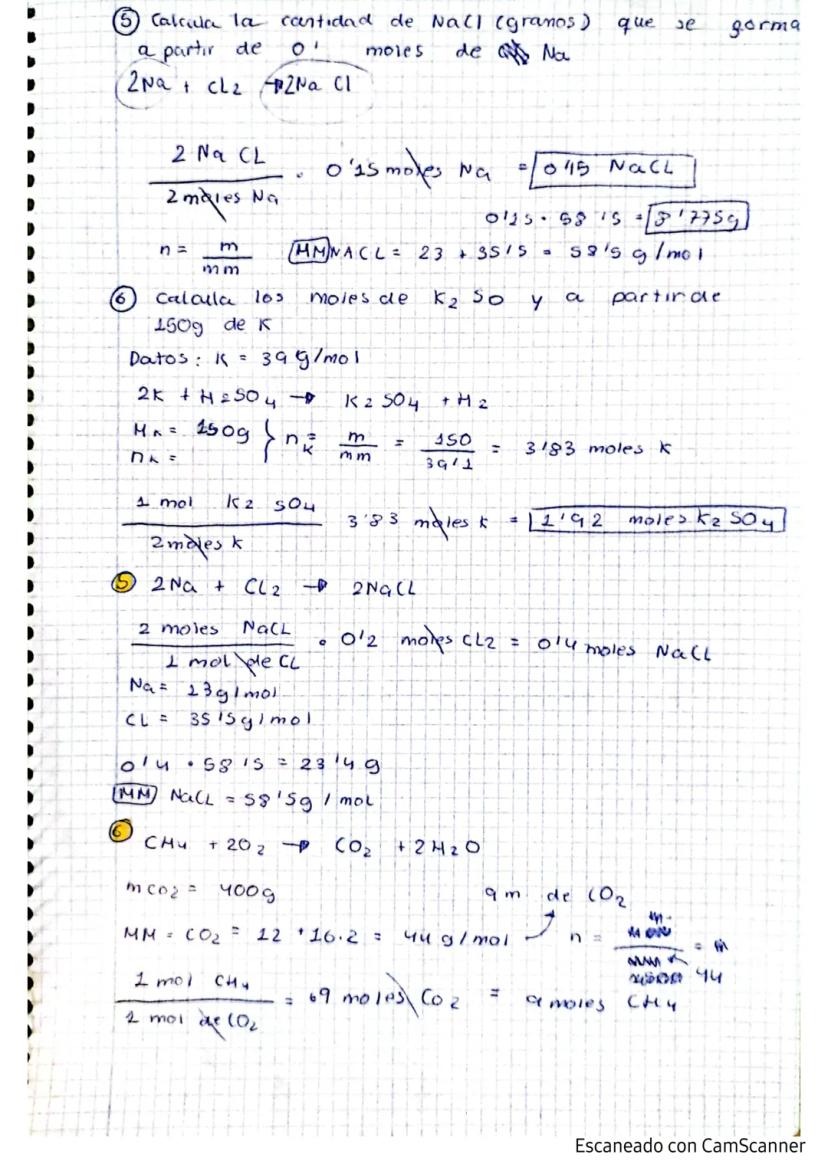 ⑤ Calcula la cantidad de NaCl (granos) que se gorma
a partir de 0' moles de Na
2Na + CL2 → 2Na Cl
2 Na CL / 2 moles Na · 0'15 moles Na = 0'15 NaCL
0'15 · 58'15 = 8'775g
n = m / mm MM NACL = 23 + 35'5 = 58'5 g/mol
⑥ Calcula los moles de K2 SO y a partir de
150g de K
Datos: K = 39 g/mol
2K + H2SO4 → K2 SO4 + H2
MK = 150g } nK = m / mm = 150 / 39'1 = 3'83 moles K
nK =
1 mol K2 SO4 / 2 moles K 3'83 moles K = 1'92 moles K2 SO4
5 2Na + CL2 → 2NaCL
2 moles NaCL / 1 mol de CL · 0'2 moles CL2 = 0'4 moles NaCL
Na = 23g/mol
CL = 35'5g/mol
0'4 · 58'5 = 23'4 g
MM NaCL = 58'5g / mol
6
CH4 + 2O2 → CO2 + 2H2O
mCO2 = 400g 9 m de CO2
MM = CO2 = 12 + 16·2 = 44 g/mol n = 44
1 mol CH4 / 1 mol de CO2 = 9 moles CO2 = 9 moles CH4
Escaneado con CamScanner